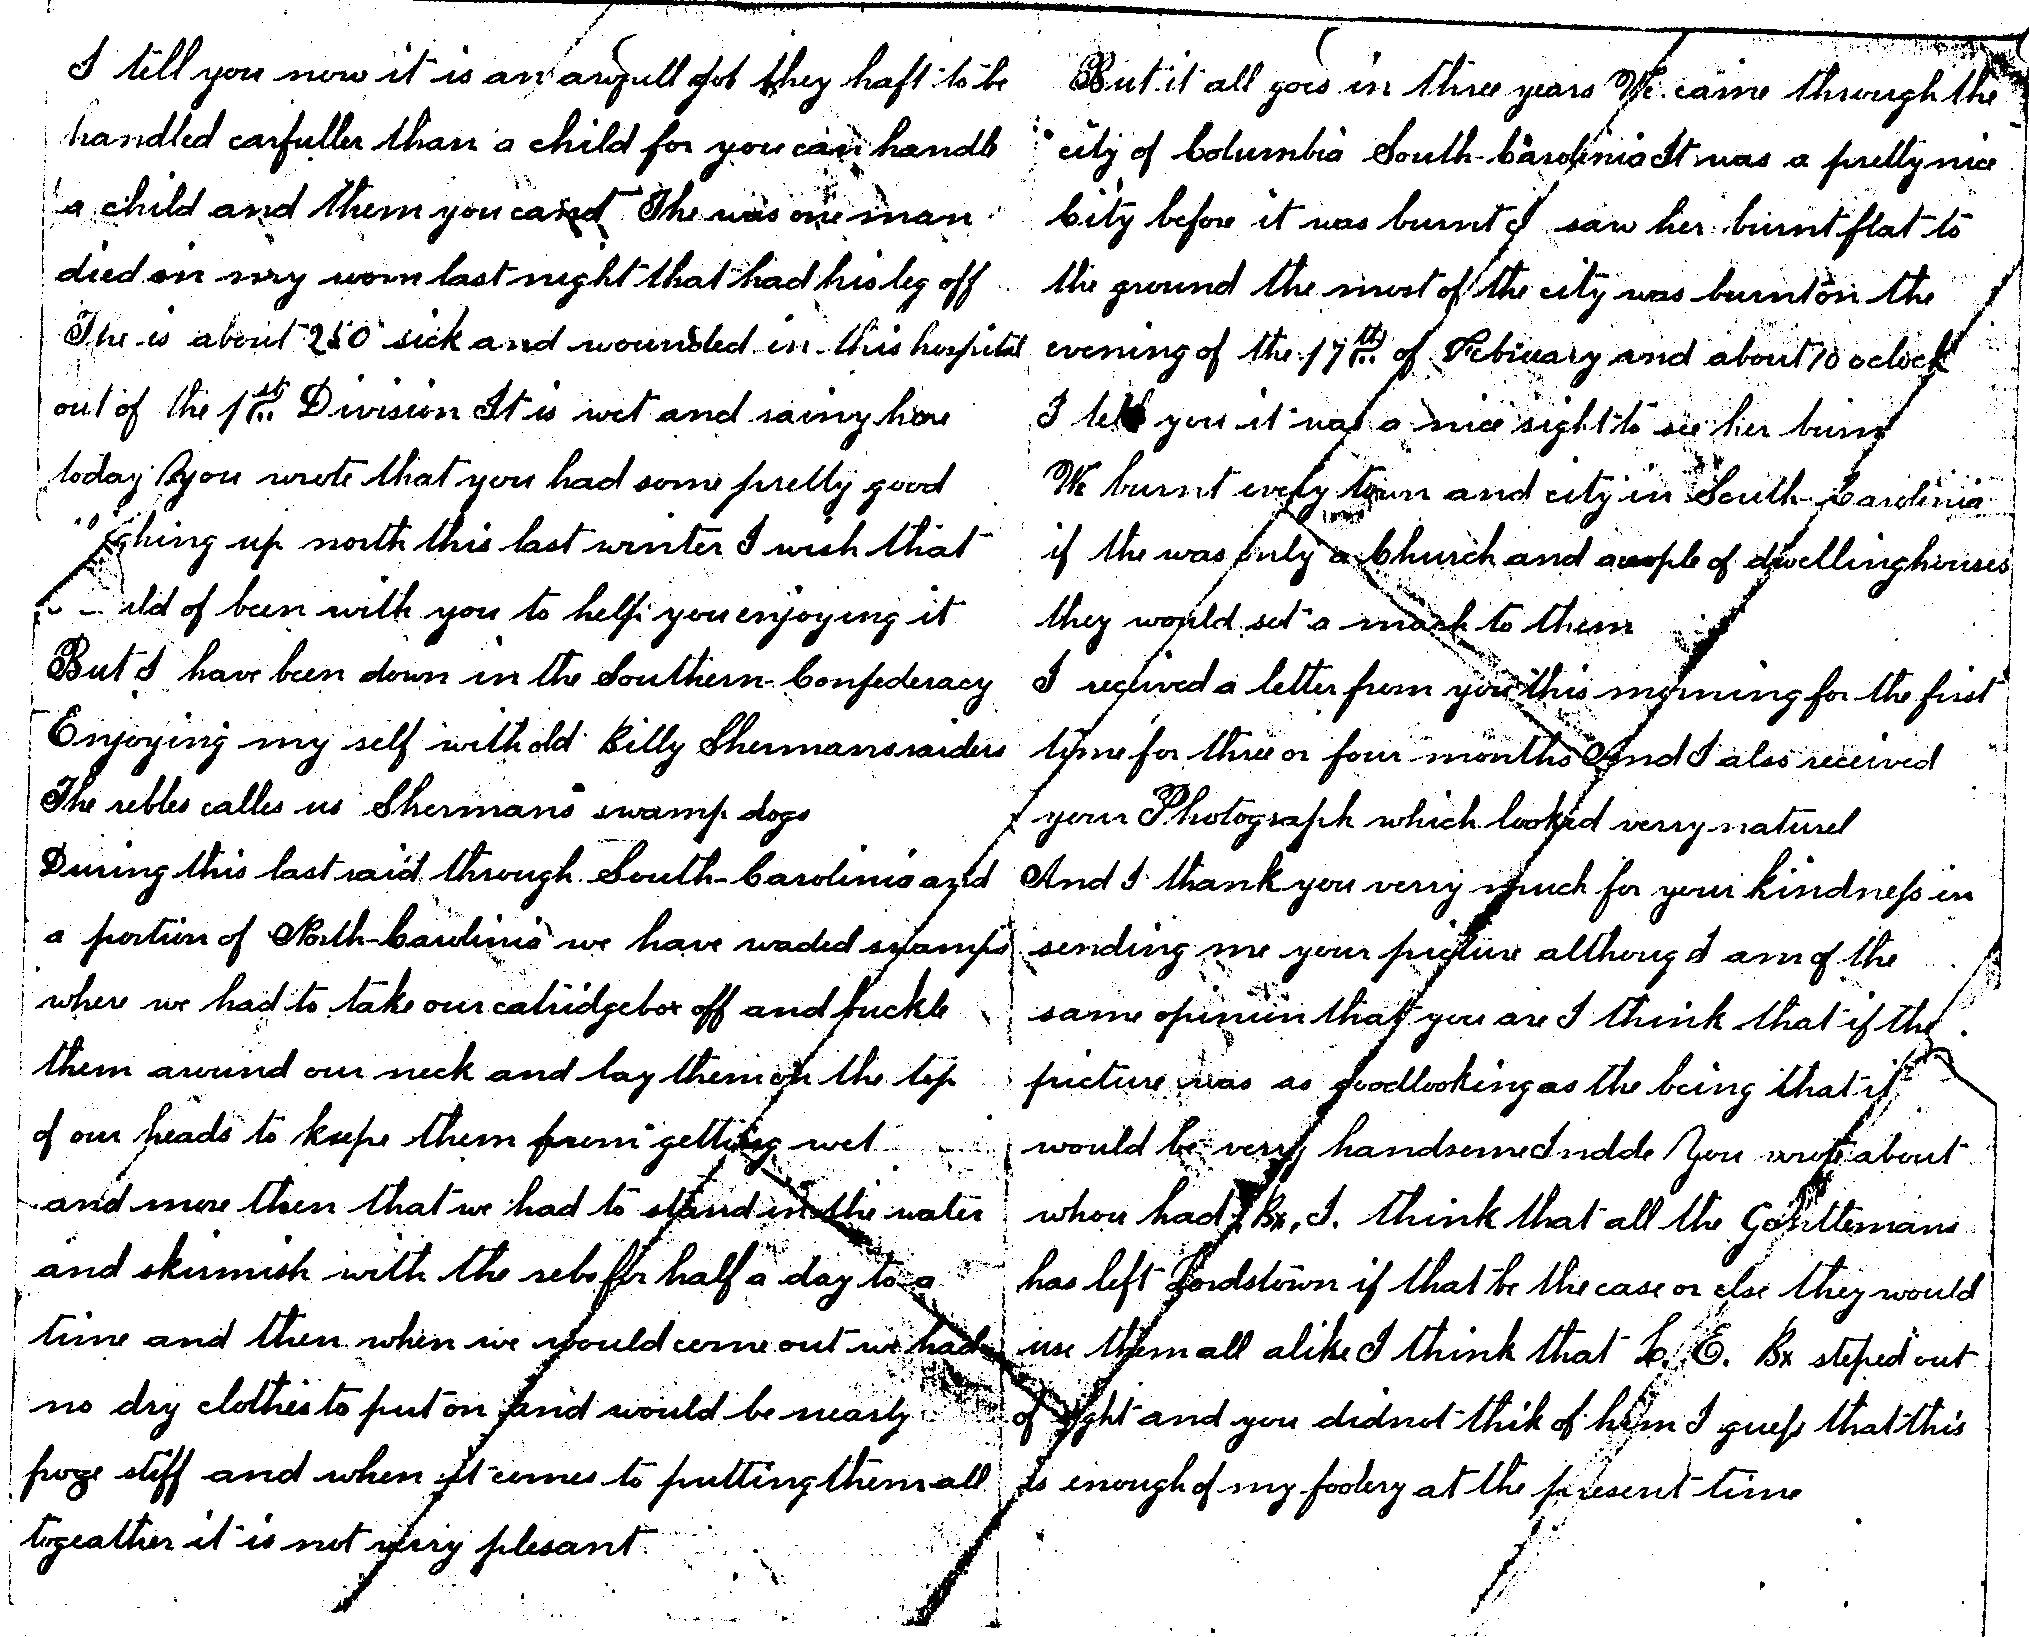 I tell you now it is an awfull job they haft to be
handled carfuller than a child for you can handle
a child and them you cannt The was one man
died in my wom last night that had his leg off
The is about 250 sick and wounded in this hospital
out of the 1st Division It is wet and rainy here
today you wrote that you had some pretty good
ghing up north this last winter I wish that
uld of been with you to help you enjoying it
But I have been down in the Southern Confederacy
Enjoying my self with old Billy Shermans raiders
The rebles calles us Shermans swamp dogs
During this last raid through South-Carolinia and
a portion of North-Carolinia we have waded swamps
where we had to take our catridgebox off and buckle
them around our neck and lay them on the top
of our heads to keepe them from getting wet
and more then that we had to stand in the water
and skirmish with the rebs for half a day to a
time and then when we would come out we had
no dry clothes to put on and would be nearly
froze stiff and when it comes to putting them all
togeather it is not verry plesant
But it all goes in three years We came through the
city of Columbia South-Carolinia It was a pretty nice
City before it was burnt I saw her burnt flat to
the ground the most of the city was burnt on the
evening of the 17th of Febiuary and about 10 oclock
I tell you it was a nice sight to see her burn
We burnt every town and city in South-Carolinia
if the was only a Church and acouple of dwellinghouses
they would set a mach to them
I received a letter from you this morning for the first
time for three or four months And I also received
your Photograph which looked verry naturel
And I thank you verry much for your kindness in
sending me your picture althoug I am of the
same opinion that you are I think that if the
picture was as goodlooking as the being that it
would be verry handsome Indde You wrote about
whou had Bx, I. think that all the Genttlemans
has left Lordstown if that be the case or else they would
use them all alike I think that L. E. Bx steped out
of sight and you did not thik of him I guess that this
is enough of my foolery at the present time